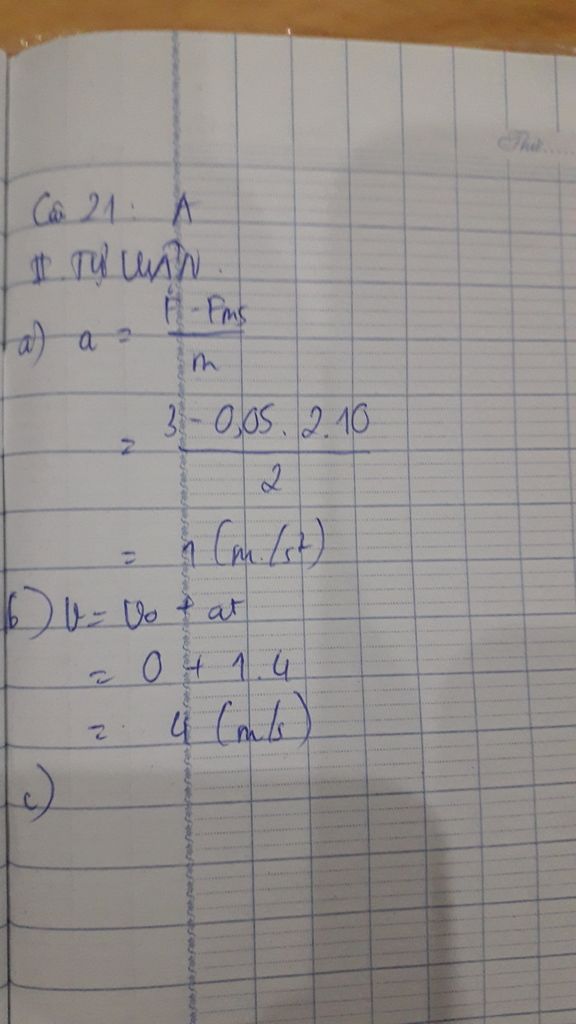 Thứ.....
Câu 21: A
II TỰ LUẬN.
a) a = F - Fms / m
= 3 - 0,05. 2.10 / 2
= 1 (m/s²)
b) v = v₀ + at
= 0 + 1.4
= 4 (m/s)
c)